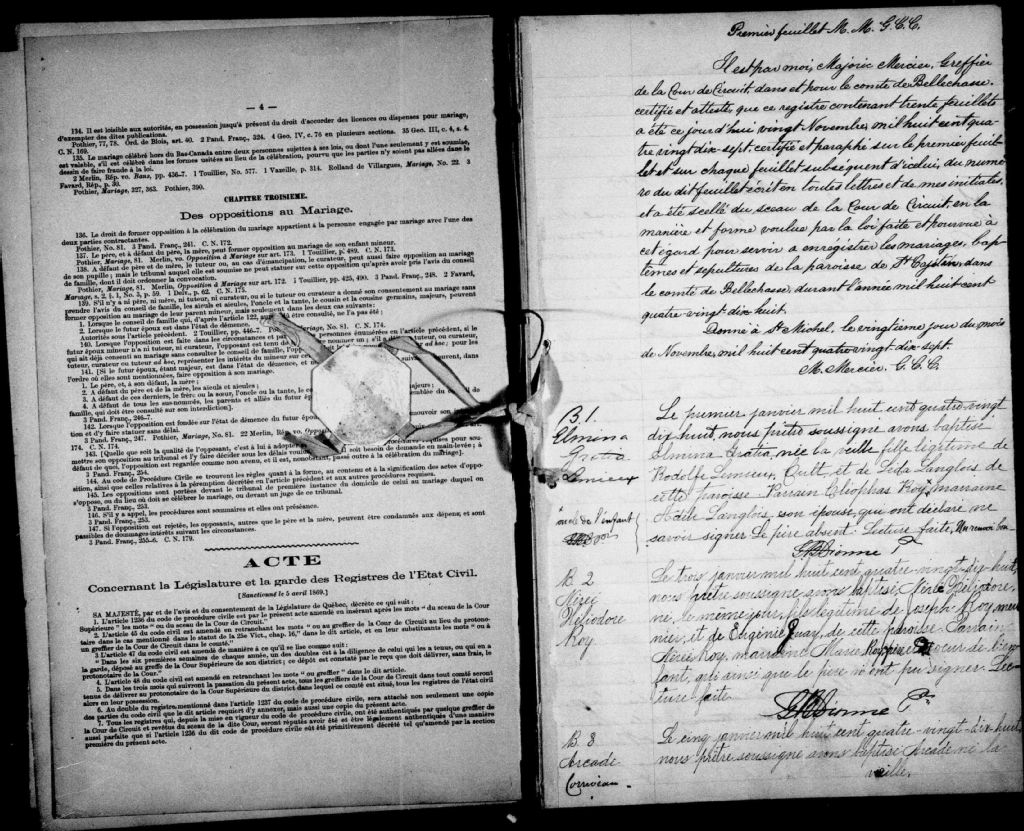 — 4 —
134. Il est loisible aux autorités, en possession jusqu'à présent du droit d'accorder des licences ou dispenses pour mariage,
d'exempter des dites publications.
Pothier, 77, 78. Ord. de Blois, art. 40. 2 Pand. Franç., 324. 4 Geo. IV, c. 76 en plusieurs sections. 35 Geo. III, c. 4, s. 4.
C. N. 169.
135. Le mariage célébré hors du Bas-Canada entre deux personnes sujettes à ses lois, ou dont l'une seulement y est soumise,
est valable, s'il est célébré dans les formes usitées au lieu de la célébration, pourvu que les parties n'y soient pas allées dans le
dessein de faire fraude à la loi.
2 Merlin, Rép. vo. Bans, pp. 436-7. 1 Touillier, No. 577. 1 Vazeille, p. 314. Rolland de Villargues, Mariage, No. 22. 3
Favard, Rép., p. 39.
Pothier, Mariage, 327, 363. Pothier, 390.
CHAPITRE TROISIEME.
Des oppositions au Mariage.
136. Le droit de former opposition à la célébration du mariage appartient à la personne engagée par mariage avec l'une des
deux parties contractantes.
Pothier, No. 81. 3 Pand. Franç., 241. C. N. 172.
137. Le père, et à défaut du père, la mère, peut former opposition au mariage de son enfant mineur.
Pothier, Mariage, 81. Merlin, vo. Opposition à Mariage sur art. 173. 1 Touillier, p. 489. C. N. 173.
138. A défaut de père et de mère, le tuteur ou, au cas d'émancipation, le curateur, peut aussi faire opposition au mariage
de son pupille; mais le tribunal auquel elle est soumise ne peut statuer sur cette opposition qu'après avoir pris l'avis du conseil
de famille, dont il doit ordonner la convocation.
Pothier, Mariage, 81. Merlin, Opposition à Mariage sur art. 172. 1 Touillier, pp. 425, 490. 3 Pand. Franç., 248. 2 Favard,
Mariage, s. 2, § 1, No. 3, p. 59. 1 Delv., p. 62. C. N. 175.
139. S'il n'y a ni père, ni mère, ni tuteur, ni curateur, ou si le tuteur ou curateur a donné son consentement au mariage sans
prendre l'avis du conseil de famille, les aïeuls et aïeules, l'oncle et la tante, le cousin et la cousine germains, majeurs, peuvent
former opposition au mariage de leur parent mineur, mais seulement dans les deux cas suivants:
1. Lorsque le conseil de famille qui, d'après l'article 122, être consulté, ne l'a pas été;
2. Lorsque le futur époux est dans l'état de démence.
Autorités sous l'article précédent. 2 Touillier, pp. 446-7. Mariage, No. 81. C. N. 174.
140. Lorsque l'opposition est faite dans les circonstances et par personnes énumérées en l'article précédent, si le
futur époux mineur n'a ni tuteur, ni curateur, l'opposant est tenu de nommer un; s'il a tuteur, ou curateur,
qui ait déjà consenti au mariage sans consulter le conseil de famille, ad hoc; pour les
tuteur, curateur ou tuteur ad hoc, représenter les intérêts du mineur sur
141. [Si le futur époux, étant majeur, est dans l'état de démence, suivent, dans
l'ordre où elles sont mentionnées, faire opposition à son mariage.
1. Le père, et, à son défaut, la mère;
2. A défaut du père et de la mère, les aïeuls et aïeules;
3. A défaut de ces derniers, le frère ou la sœur, l'oncle ou la tante, majeurs;
4. A défaut de tous les sus-nommés, les parents et alliés du futur époux
famille, qui doit être consulté sur son interdiction].
3 Pand. Franç., 246-7.
142. Lorsque l'opposition est fondée sur l'état de démence du futur époux
tion et d'y faire statuer sans délai.
3 Pand. Franç., 247. Pothier, Mariage, No. 81. 22 Merlin, Rép. vo. Oppos.
174. C. N. 174.
143. [Quelle que soit la qualité de l'opposant, c'est à lui à adopter procédures requises pour sou-
mettre son opposition au tribunal et l'y faire décider sous les délais voulus soit besoin de demande en mainlevée; à
défaut de quoi, l'opposition est regardée comme non avenue, et il est, passé outre à la célébration du mariage].
3 Pand. Franç., 254.
144. Au code de Procédure Civile se trouvent les règles quant à la forme, au contenu et à la signification des actes d'oppo-
sition, ainsi que celles relatives à la péremption décrétée en l'article précédent et aux autres procédures requises.
145. Les oppositions sont portées devant le tribunal de première instance du domicile de celui au mariage duquel on
s'oppose, ou du lieu où doit se célébrer le mariage, ou devant un juge de ce tribunal.
3 Pand. Franç., 253.
146. S'il y a appel, les procédures sont sommaires et elles ont préséance.
3 Pand. Franç., 253.
147. Si l'opposition est rejetée, les opposants, autres que le père et la mère, peuvent être condamnés aux dépens; et sont
passibles de dommages-intérêts suivant les circonstances.
3 Pand. Franç., 255-6. C. N. 179.
ACTE
Concernant la Législature et la garde des Registres de l'Etat Civil.
[Sanctionné le 5 avril 1869.]
SA MAJESTÉ, par et de l'avis et du consentement de la Législature de Québec, décrète ce qui suit:
1. L'article 1236 du code de procédure civile est par le présent acte amendé en insérant après les mots "du sceau de la Cour
Supérieure" les mots "ou du sceau de la Cour de Circuit."
2. L'article 45 du code civil est amendé en retranchant les mots "ou au greffier de la Cour de Circuit au lieu du protono-
taire dans le cas mentionné dans le statut de la 25e Vict., chap. 16," dans le dit article, et en leur substituant les mots "ou à
un greffier de la Cour de Circuit dans le comté."
3. L'article 47 du code civil est amendé de manière à ce qu'il se lise comme suit:
"Dans les six premières semaines de chaque année, un des doubles est à la diligence de celui qui les a tenus, ou qui en a
la garde, déposé au greffe de la Cour Supérieure de son district; ce dépôt est constaté par le reçu que doit délivrer, sans frais, le
protonotaire de la Cour."
4. L'article 48 du code civil est amendé en retranchant les mots "ou greffier" dans le dit article.
5. Dans les trois mois qui suivront la passation du présent acte, tous les greffiers de la Cour de Circuit dans tout comté seront
tenus de délivrer au protonotaire de la Cour Supérieure du district dans lequel ce comté est situé, tous les registres de l'état civil
alors en leur possession.
6. Au double du registre mentionné dans l'article 1237 du code de procédure civile, sera attaché non seulement une copie
des parties du code civil que le dit article requiert d'y annexer, mais aussi une copie du présent acte.
7. Tous les registres qui, depuis la mise en vigueur du code de procédure civile, ont été authentiqués par quelque greffier de
la Cour de Circuit et revêtus du sceau de la dite Cour, seront réputés avoir été et être légalement authentiqués d'une manière
aussi parfaite que si l'article 1236 du dit code de procédure civile eût été primitivement décrété tel qu'amendé par la section
première du présent acte.
Premier feuillet M. M. G. C. C.
Il est par moi, Majoric Mercier, Greffier
de la Cour de Circuit, dans et pour le comté de Bellechasse,
certifié et attesté, que ce registre contenant trente feuillets
a été ce jourd'hui vingt Novembre, mil huit cent qua-
tre vingt dix-sept, certifié et paraphé sur le premier feuil-
let et sur chaque feuillet subséquent d'icelui, du numé-
ro du dit feuillet écrit en toutes lettres et de mes initiales,
et a été scellé du sceau de la Cour de Circuit, en la
manière et forme voulue par la loi faite et pourvue à
cet égard pour servir à enregistrer les mariages, bap-
têmes et sépultures de la paroisse de St Cajetan, dans
le comté de Bellechasse, durant l'année mil huit cent
quatre-vingt dix-huit.
Donné à St Michel, le vingtième jour du mois
de Novembre, mil huit cent quatre vingt dix sept.
M. Mercier, G. C. C.
B. 1.
Elmina
Gratia
Lemieux
Le premier janvier mil huit cent quatre-vingt
dix huit, nous prêtre soussigné avons baptisé
Elmina Gratia, née la veille fille légitime de
Rodolfe Lemieux, Cultr et de Leda Langlois de
cette paroisse. Parrain Cléophas Roy, marraine
Adèle Langlois, son épouse, qui ont déclaré ne
savoir signer. Le père absent. Lecture faite. Un renvoi bon
oncle de l'enfant
GADionne Ptr
B. 2
Nérée
Héliodore
Roy
Le trois janvier mil huit cent quatre-vingt-dix-huit,
nous prêtre soussigné avons baptisé Nérée Héliodore,
né le même jour, fils légitime de Joseph Roy, meu-
nier, et de Eugénie Guay, de cette paroisse. Parrain
Nérée Roy, marraine Marie soeur de l'en-
fant, qui ainsi que le père n'ont pu signer. Lec-
ture faite.
GADionne Ptr
B. 3
Arcade
Corriveau
Le cinq janvier mil huit cent quatre-vingt-dix-huit,
nous prêtre soussigné avons baptisé Arcade né la
veille,